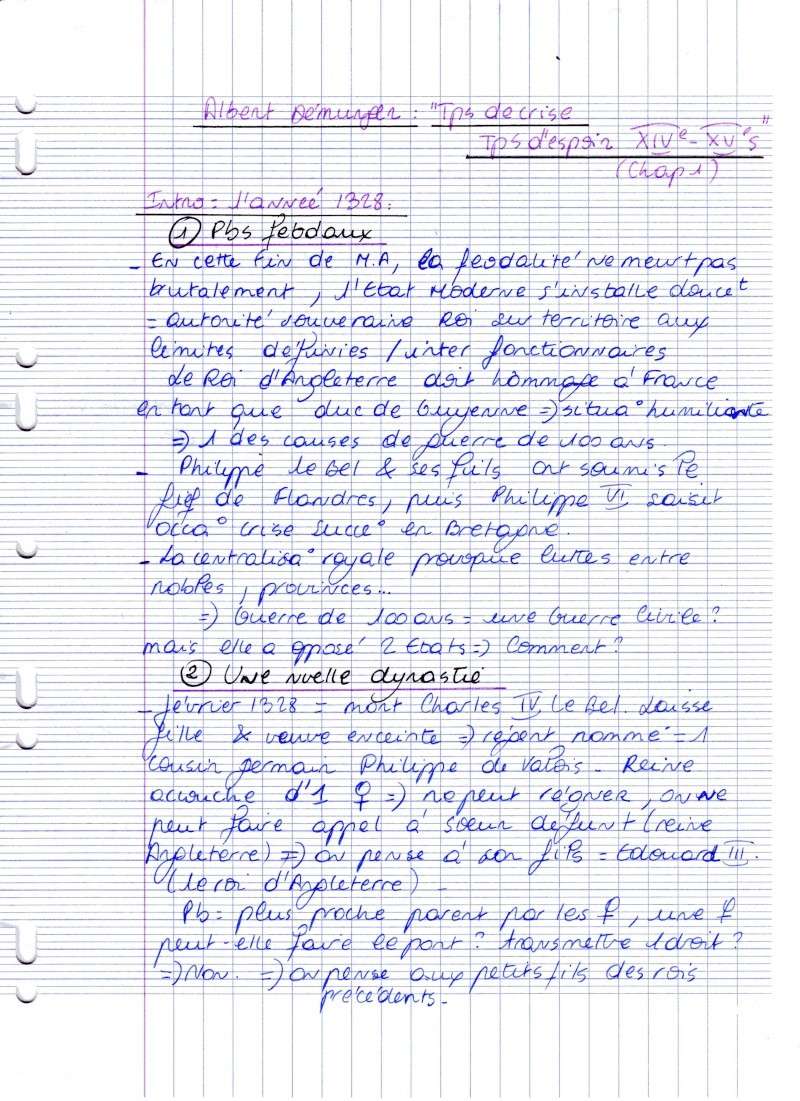 Albert Demurger : "Tps de crise
Tps d'espoir XIVe - XVe s"
(Chap 1)
Intro = l'année 1328 :
① Pbs féodaux
- En cette fin de M.A, la féodalité ne meurt pas
brutalement, l'Etat Moderne s'installe doucet
= autorité souveraine Roi sur territoire aux
limites définies / inter fonctionnaires
Le Roi d'Angleterre doit hommage à France
en tant que duc de Guyenne => situa° humiliante
=> 1 des causes de guerre de 100 ans.
- Philippe le Bel & ses fils ont soumis le
fief de Flandres, puis Philippe VI saisit
occa° crise succe° en Bretagne.
- La centralisa° royale provoque luttes entre
nobles, provinces...
=> Guerre de 100 ans = une Guerre Civile ?
mais elle a opposé 2 Etats => Comment ?
② Une nvelle dynastie
- février 1328 = mort Charles IV le Bel. Laisse
fille & veuve enceinte => régent nommé = 1
cousin germain Philippe de Valois - Reine
accouche d'1 ♀ => ne peut régner, on ne
peut faire appel à soeur défunt (reine
Angleterre) => on pense à son fils = Edouard III.
(le roi d'Angleterre) -
Pb = plus proche parent par les f, une f
peut-elle faire le pont ? transmettre 1 droit ?
=> Non. => on pense aux petits fils des rois
précédents -